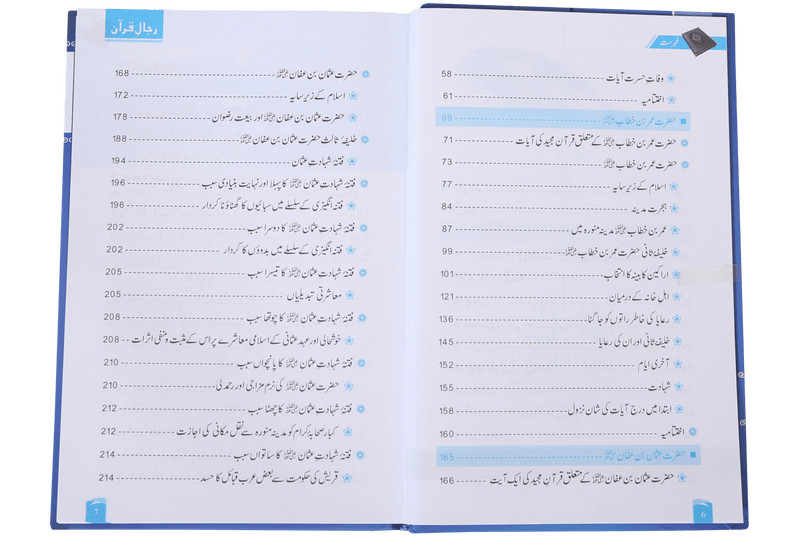 فہرست
وفات حسرت آیات 58
اختتامیہ 61
حضرت عمر بن خطاب ؓ 69
حضرت عمر بن خطاب ؓ کے متعلق قرآن مجید کی آیات 71
حضرت عمر بن خطاب ؓ 73
اسلام کے زیر سایہ 77
ہجرت مدینہ 84
عمر بن خطاب ؓ مدینہ منورہ میں 87
خلیفۂ ثانی حضرت عمر بن خطاب ؓ 99
اراکین کابینہ کا انتخاب 101
اہل خانہ کے درمیان 121
رعایا کی خاطر راتوں کو جاگنا 136
خلیفۂ ثانی اور ان کی رعایا 145
آخری ایام 152
شہادت 155
ابتدا میں درج آیات کی شان نزول 158
اختتامیہ 160
حضرت عثمان بن عفان ؓ 165
حضرت عثمان بن عفان ؓ کے متعلق قرآن مجید کی ایک آیت 166
6
رجال قرآن
حضرت عثمان بن عفان ؓ 168
اسلام کے زیر سایہ 172
حضرت عثمان بن عفان ؓ اور بیعت رضوان 178
خلیفۂ ثالث حضرت عثمان بن عفان ؓ 188
فتنۂ شہادت عثمان 194
فتنۂ شہادت عثمان ؓ کا پہلا اور نہایت بنیادی سبب 196
فتنہ انگیزی کے سلسلے میں سبائیوں کا گھناؤنا کردار 196
فتنۂ شہادت عثمان ؓ کا دوسرا سبب 202
فتنہ انگیزی کے سلسلے میں بدوؤں کا کردار 202
فتنۂ شہادت عثمان ؓ کا تیسرا سبب 205
معاشرتی تبدیلیاں 205
فتنۂ شہادت عثمان ؓ کا چوتھا سبب 208
خوشحالی اور عہد عثمانی کے اسلامی معاشرے پر اس کے مثبت و منفی اثرات 208
فتنۂ شہادت عثمان ؓ کا پانچواں سبب 210
حضرت عثمان بن عفان ؓ کی نرم مزاجی اور رحمدلی 210
فتنۂ شہادت عثمان ؓ کا چھٹا سبب 212
کبار صحابہ کرام کو مدینہ منورہ سے نقل مکانی کی اجازت 212
فتنۂ شہادت عثمان ؓ کا ساتواں سبب 214
قریش کی حکومت سے بعض عرب قبائل کا حسد 214
7